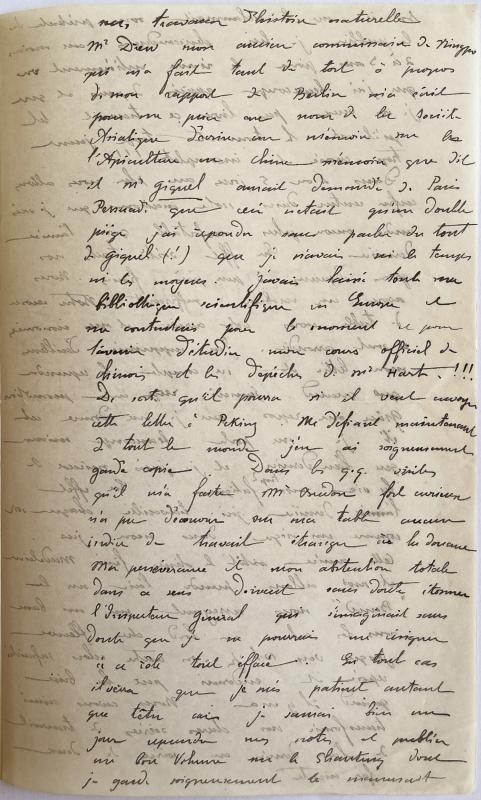 travaux d'histoire naturelle
Mr Dreu mon ancien commissaire de Ningpo
qui m'a fait tant de tort à propos
de mon rapport de Berlin m'a écrit
pour me prier au nom de la Société
Asiatique d'écrire un mémoire sur
l'Apiculture en Chine mémoire que dit
il mr giquel aurait demandé de Paris
Persuadé que ceci n'était qu'un double
piège j'ai répondu sans parler du tout
de giquel (!) que je n'avais ni le temps
ni les moyens. J'avais laissé toute ma
bibliothèque scientifique en Europe et
me contentais pour le moment et pour
l'avenir d'étudier mon cours officiel de
chinois et les dépêches de mr Hart. !!!
De sorte qu'il pourra si il veut envoyer
cette lettre à Peking. Me défiant maintenant
de tout le monde j'en ai soigneusement
gardé copie. Dans les q.q. visites
qu'il m'a faites Mr Bredon fort curieux
n'a pu découvrir sur ma table aucun
indice de travail étranger à la douane
Ma persévérance et mon abstention totale
dans ce sens doivent sans doute étonner
l'Inspecteur général qui s'imaginait sans
doute que je ne pourrais me résigner
à ce rôle tout effacé. En tout cas
il verra que je suis patient autant
que têtu car je saurais bien un
jour reprendre mes notes et publier
un bon Volume sur le Shantung dont
je garde soigneusement le manuscrit